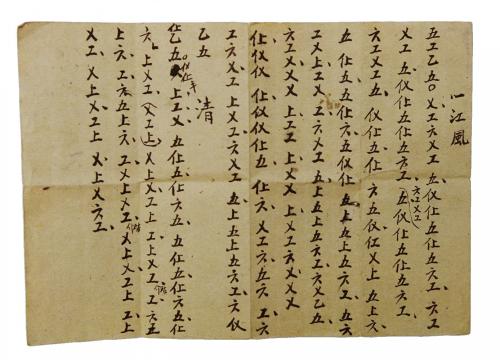 一江風
五工乙五〇乂工六乂工 五仪仩五仩五六工 六工
乂工 五仪仩五仩五六工 五仪仩五仩五六工
六工乂工五 仪仩五仩 六五仪仜乂上 五上六
五 仩五六工六五仩 五上五上五六工 五六
工乂上乂工 上乂工五上五六工六乂乙五
六工乂乂 上工工上乂 上乂工六乂乂乂
仩仪仪 仩仪仪仩五 仩六 乂工六五六 工六
工六 六工乂工六乂工 五上五上五六工六仪
乙五 清
仩乙五 上工乂 五仩五仩六五 五仩五仩六五仩
六上乂工(乂工上)乂上乂工 上工上乂工 工六五
上六工六五上六 工乂上乂工 乂上乂工上 工上
乂工 乂上乂上 乂上乂六工